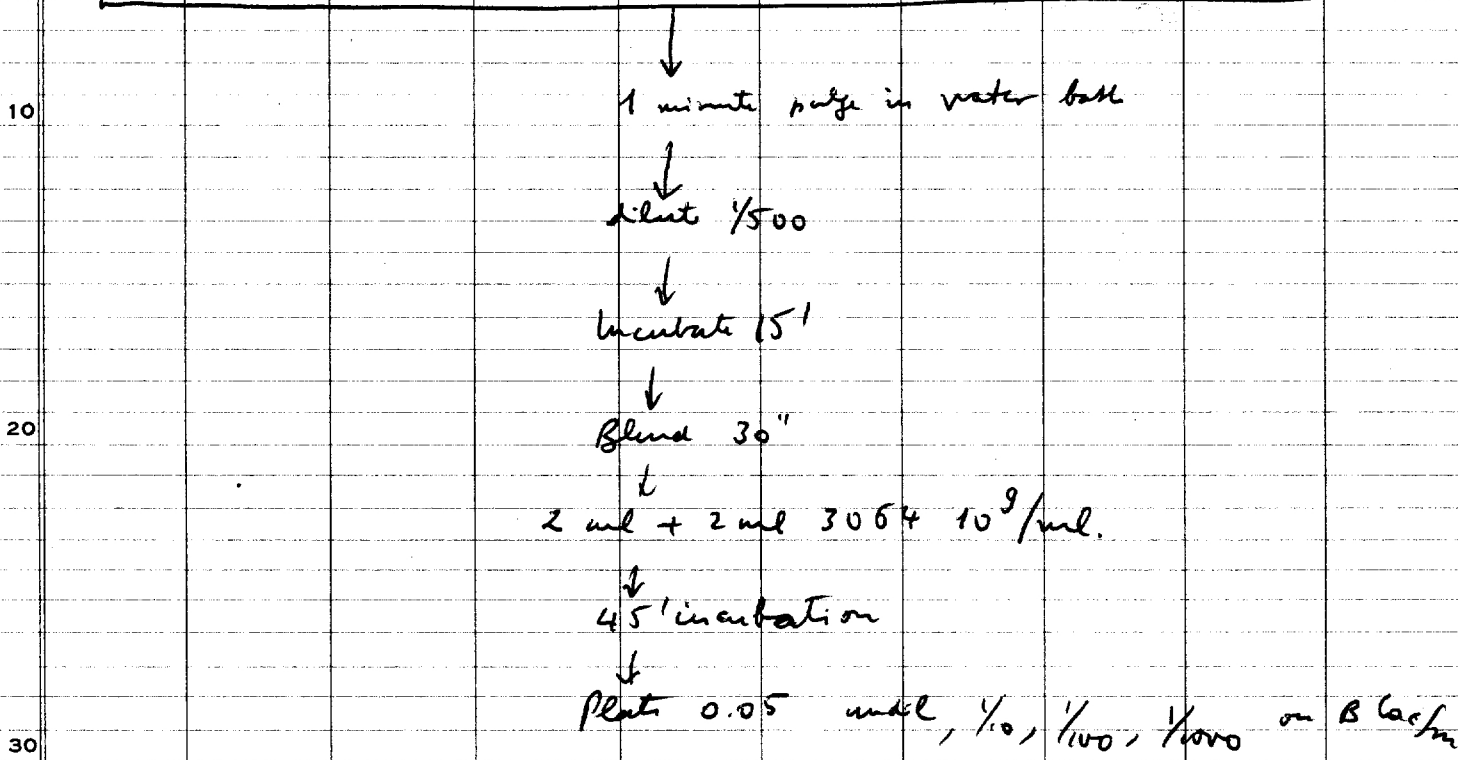 10
1 minute pulse in water bath
dilute 1/500
Incubate 15'
20
Blend 30"
2 ml + 2 ml 3064 10⁹/ml.
45' incubation
Plate 0.05 undil, 1/10, 1/100, 1/1000 on B Lac/sm
30